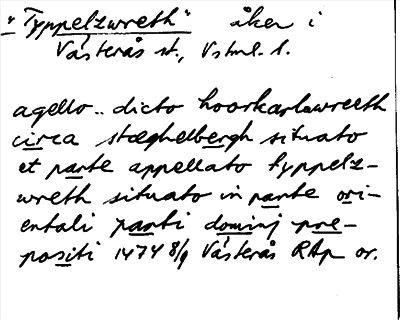 "Typpelzwreth" åker i
Västerås st., Vstml. l.
agello.. dicto hoorkarlawreeth
circa stæghelbergh situato
et parte appellato typpelz-
wreth situato in parte ori-
entali parti dominj pre-
positi 1474 8/9 Västerås RAp or.